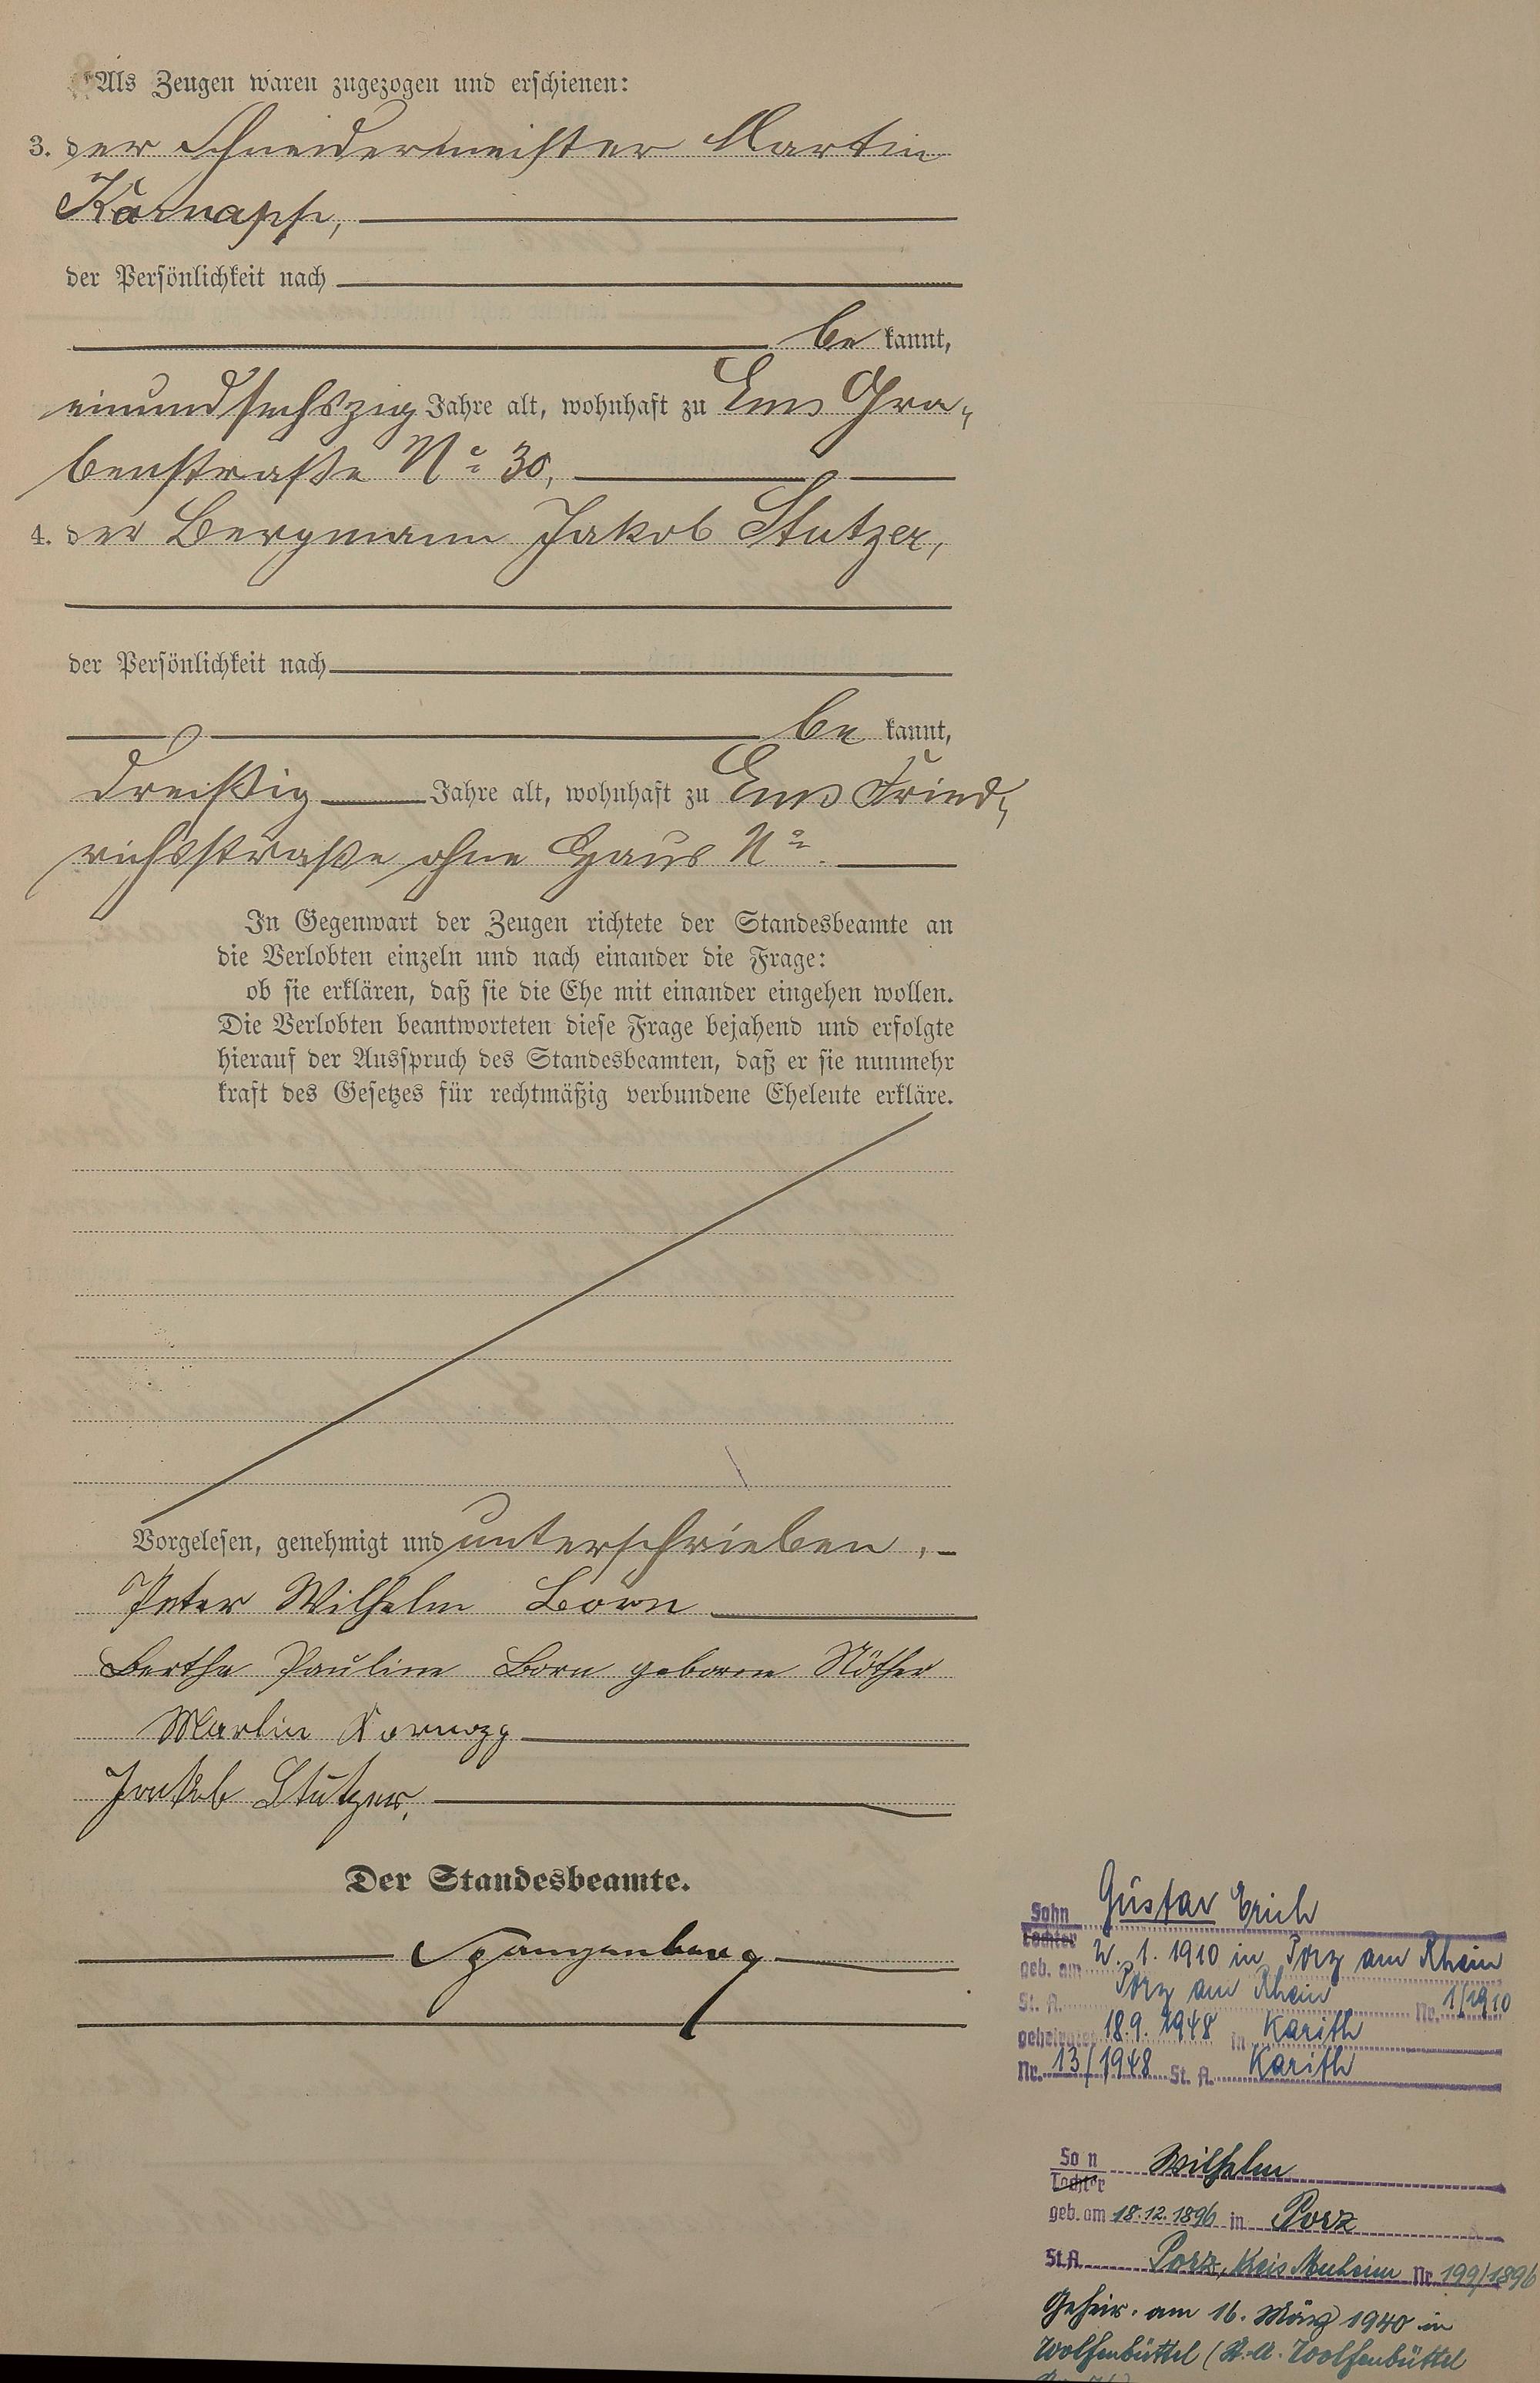 Als Zeugen waren zugezogen und erschienen:
3. der Schneidermeister Martin
Karnapp,
der Persönlichkeit nach
be kannt,
einundsechszig Jahre alt, wohnhaft zu Ems Gra-
benstraße No 30,
4. der Bergmann Jakob Stutzer,
der Persönlichkeit nach
be kannt,
dreißig Jahre alt, wohnhaft zu Ems Fried-
richsstraße ohne Haus No.
In Gegenwart der Zeugen richtete der Standesbeamte an
die Verlobten einzeln und nach einander die Frage:
ob sie erklären, daß sie die Ehe mit einander eingehen wollen.
Die Verlobten beantworteten diese Frage bejahend und erfolgte
hierauf der Ausspruch des Standesbeamten, daß er sie nunmehr
kraft des Gesetzes für rechtmäßig verbundene Eheleute erkläre.
Vorgelesen, genehmigt und unterschrieben.
Peter Wilhelm Born
Bertha Pauline Born geborne Nöther
Martin
Jakob Stutzer.
Der Standesbeamte.
Spangenberg
Sohn Gustav Erich
Tochter
geb. am 2. 1. 1910 in Porz am Rhein
St. A. Porz am Rhein Nr. 1/1910
geheiratet 18.9.1948 in Karith
Nr. 13/1948 St. A. Karith
Sohn Wilhelm
Tochter
geb. am 18.12.1896 in Porz
St.A. Porz, Nr. 199/1896
Geheir. am 16. März 1940 in
Wolfenbüttel (St.-A. Wolfenbüttel